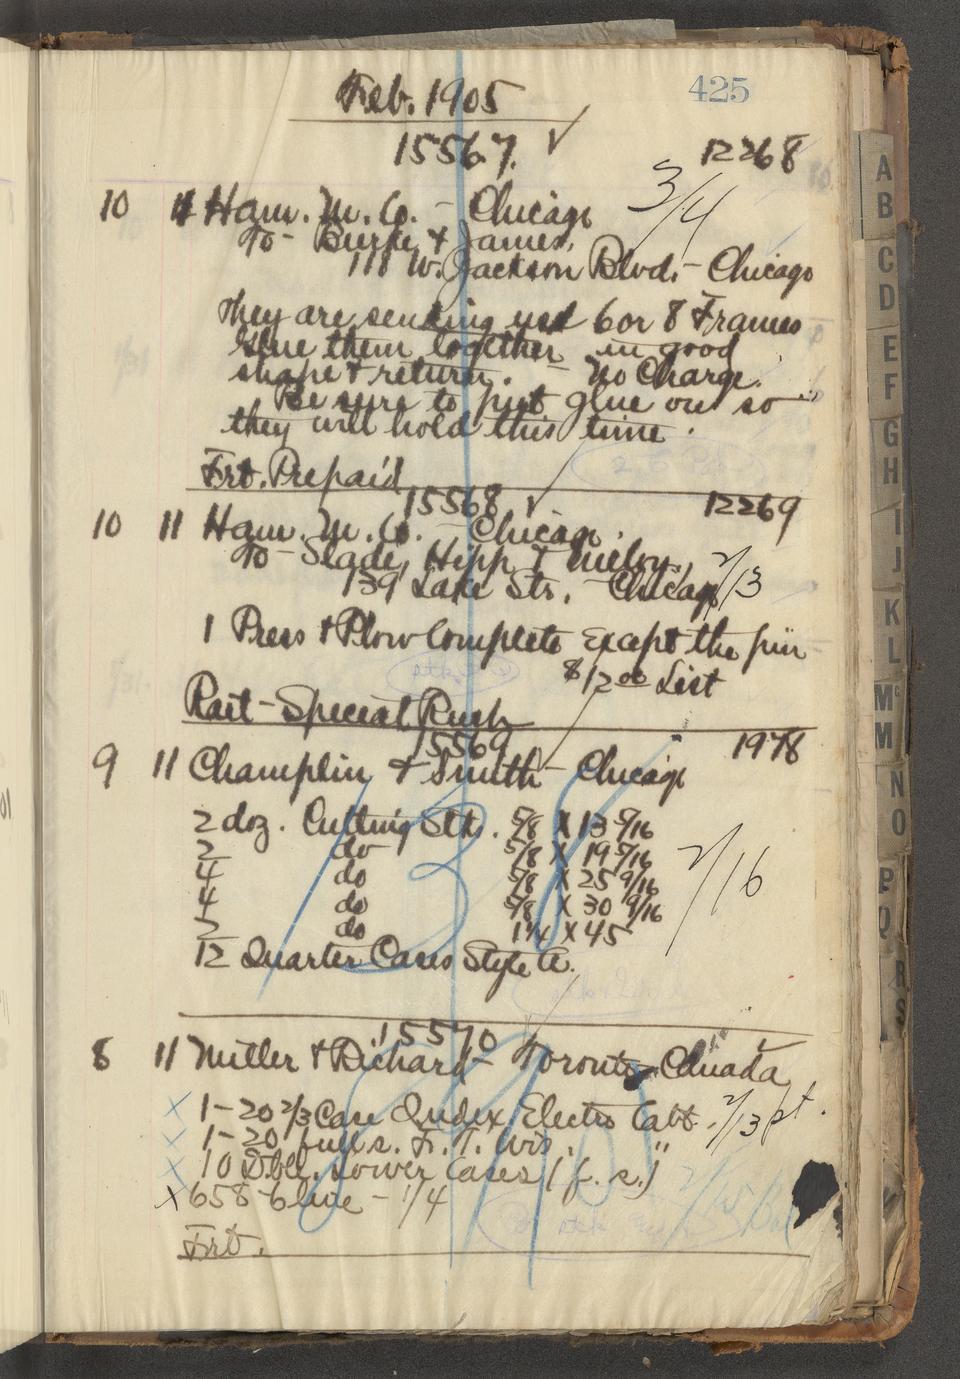 425
Feb. 1905
15567. ✓ 12268
10 11 Ham. M. Co. - Chicago 3/4
To - Burke & James,
111 W. Jackson Blvd. - Chicago
They are sending you 6 or 8 Frames
Glue them together in good
shape & return. - No Charge.
Be sure to put glue on so
they will hold this time.
Frt. Prepaid
15568 ✓ 12269
10 11 Ham. M. Co. - Chicago.
To - Slade, Hipp & Meloy, 2/13
139 Lake Str. - Chicago
1 Press & Plow Complete Except the pin
$12.00 List
Rait - Special Rush
15569 1978
9 11 Champlin & Smith - Chicago
2 doz. Cutting Stks. 5/8 X 13 5/16
2 do 5/8 X 19 5/16
4 do 5/8 X 25 9/16 2/16
4 do 5/8 X 30 9/16
2 do 1 1/4 X 45
12 Quarter Cases Style A.
15570 ✓
8 11 Miller & Richard - Toronto Canada
X 1 - 20 2/3 Case Index, Electro Cabt. 2/13 pt.
X 1 - 20 full s. F. T. Wis. "
X 10 Dbl. Lower Cases (f. s.)
X 658 Glue - 1/4
Frt.
A
B
C
D
E
F
G
H
I
J
K
L
Mc
M
N
O
P
Q
R
S